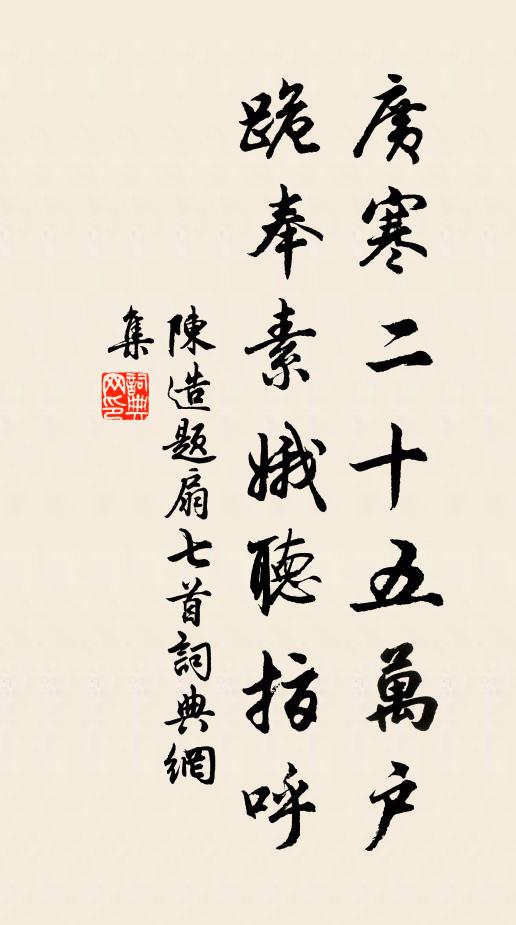 廣寒二十五萬户
跪奉素娥聽指呼
陳造題扇七首詞典網
集
詞典
网印